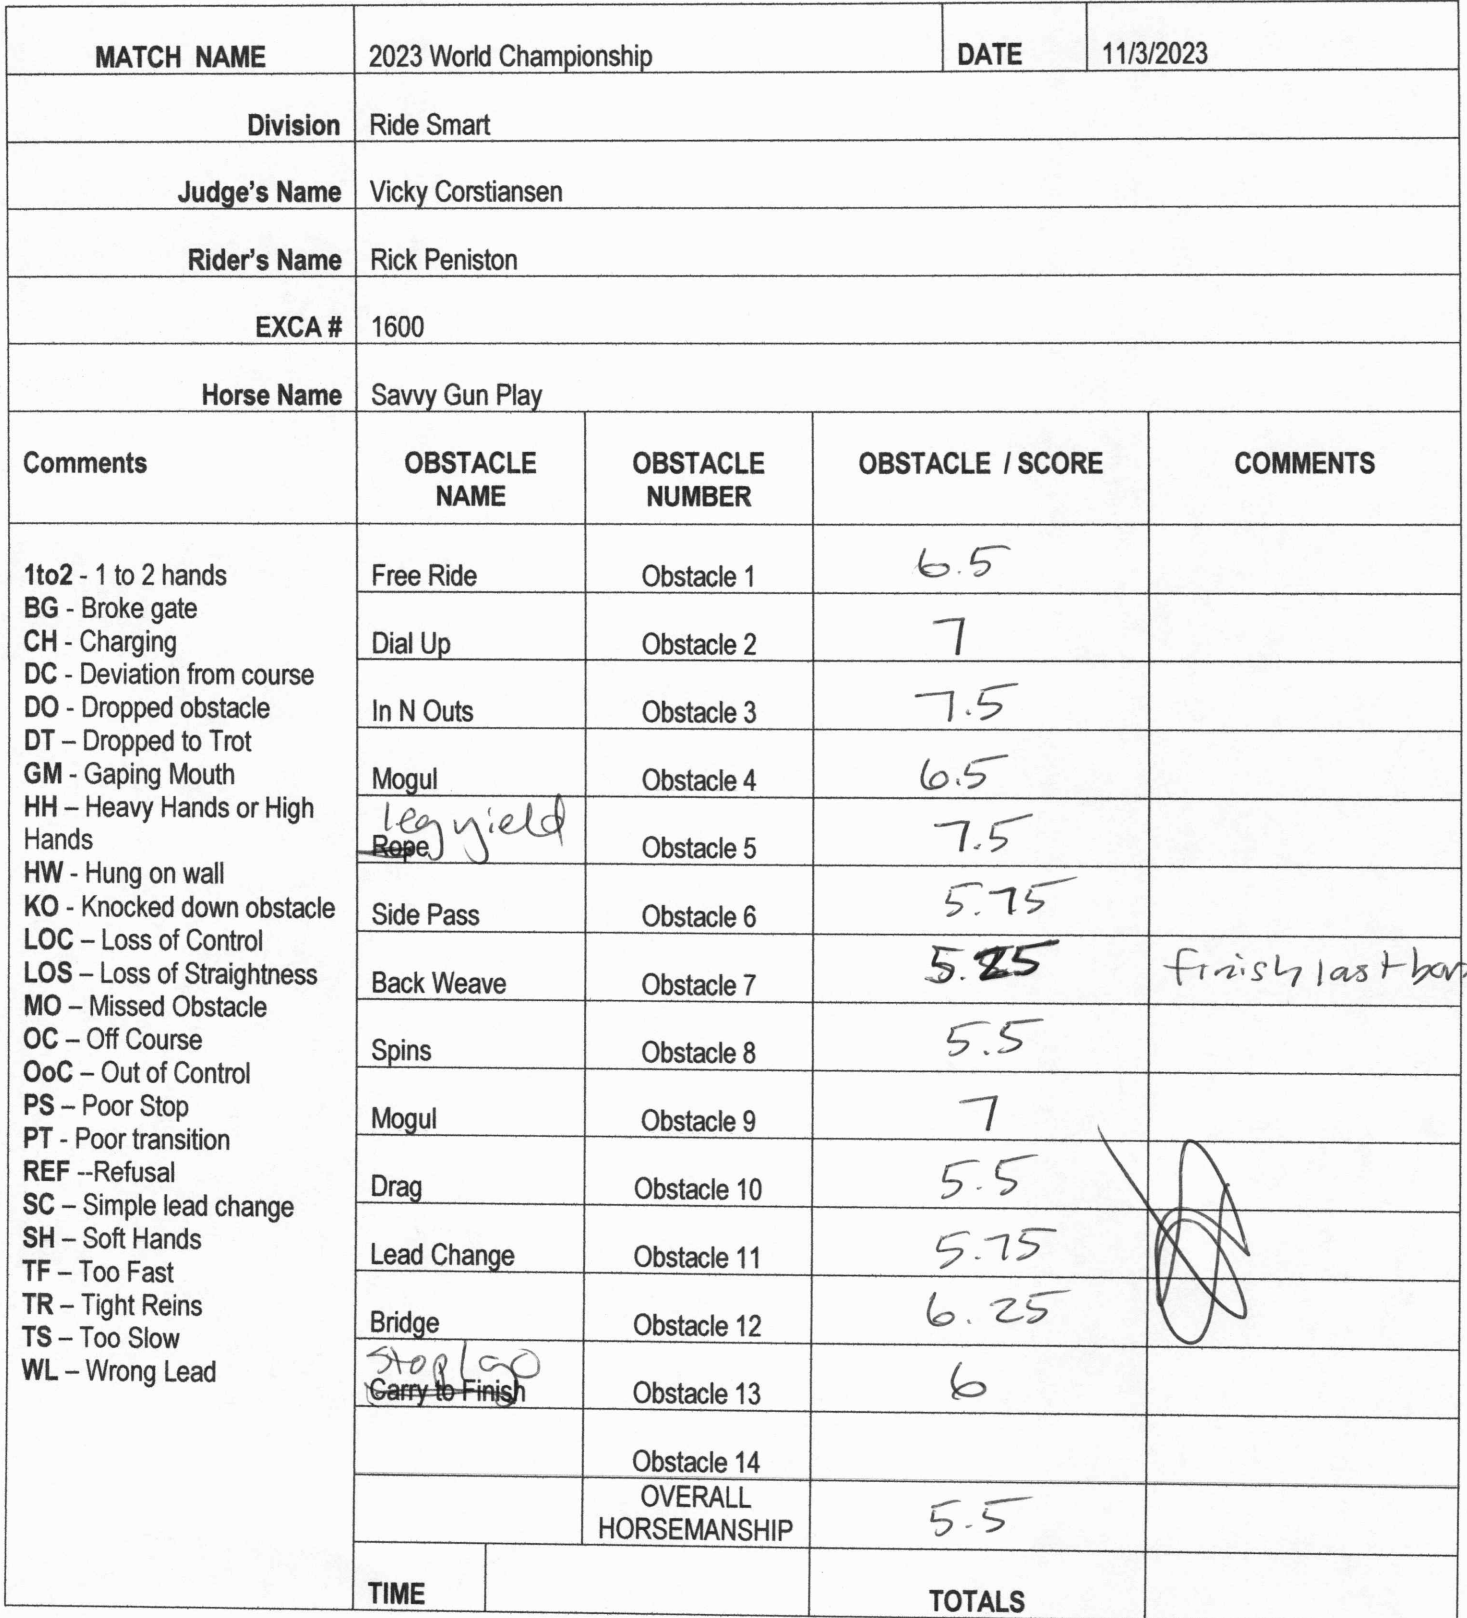 MATCH NAME 2023 World Championship DATE 11/3/2023
Division Ride Smart
Judge's Name Vicky Corstiansen
Rider's Name Rick Peniston
EXCA # 1600
Horse Name Savvy Gun Play
Comments OBSTACLE NAME OBSTACLE NUMBER OBSTACLE / SCORE COMMENTS
1to2 - 1 to 2 hands
BG - Broke gate
CH - Charging
DC - Deviation from course
DO - Dropped obstacle
DT – Dropped to Trot
GM - Gaping Mouth
HH – Heavy Hands or High
Hands
HW - Hung on wall
KO - Knocked down obstacle
LOC – Loss of Control
LOS – Loss of Straightness
MO – Missed Obstacle
OC – Off Course
OoC – Out of Control
PS – Poor Stop
PT - Poor transition
REF --Refusal
SC – Simple lead change
SH – Soft Hands
TF – Too Fast
TR – Tight Reins
TS – Too Slow
WL – Wrong Lead
Free Ride Obstacle 1 6.5
Dial Up Obstacle 2 7
In N Outs Obstacle 3 7.5
Mogul Obstacle 4 6.5
leg yield
Rope Obstacle 5 7.5
Side Pass Obstacle 6 5.75
Back Weave Obstacle 7 5.25 finish last
Spins Obstacle 8 5.5
Mogul Obstacle 9 7
Drag Obstacle 10 5.5
Lead Change Obstacle 11 5.75
Bridge Obstacle 12 6.25
Stop/go
Carry to Finish Obstacle 13 6
Obstacle 14
OVERALL
HORSEMANSHIP 5.5
TIME TOTALS